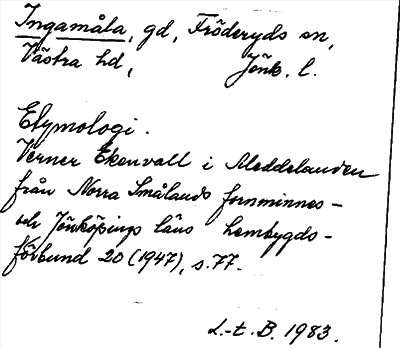 Ingamåla, gd, Fröderyds sn,
Västra hd, Jönk. l.
Etymologi.
Verner Ekenvall i Meddelanden
från Norra Smålands fornminnes-
och Jönköpings läns hembygds-
förbund 20 (1947), s. 77.
L.-t. B. 1983.